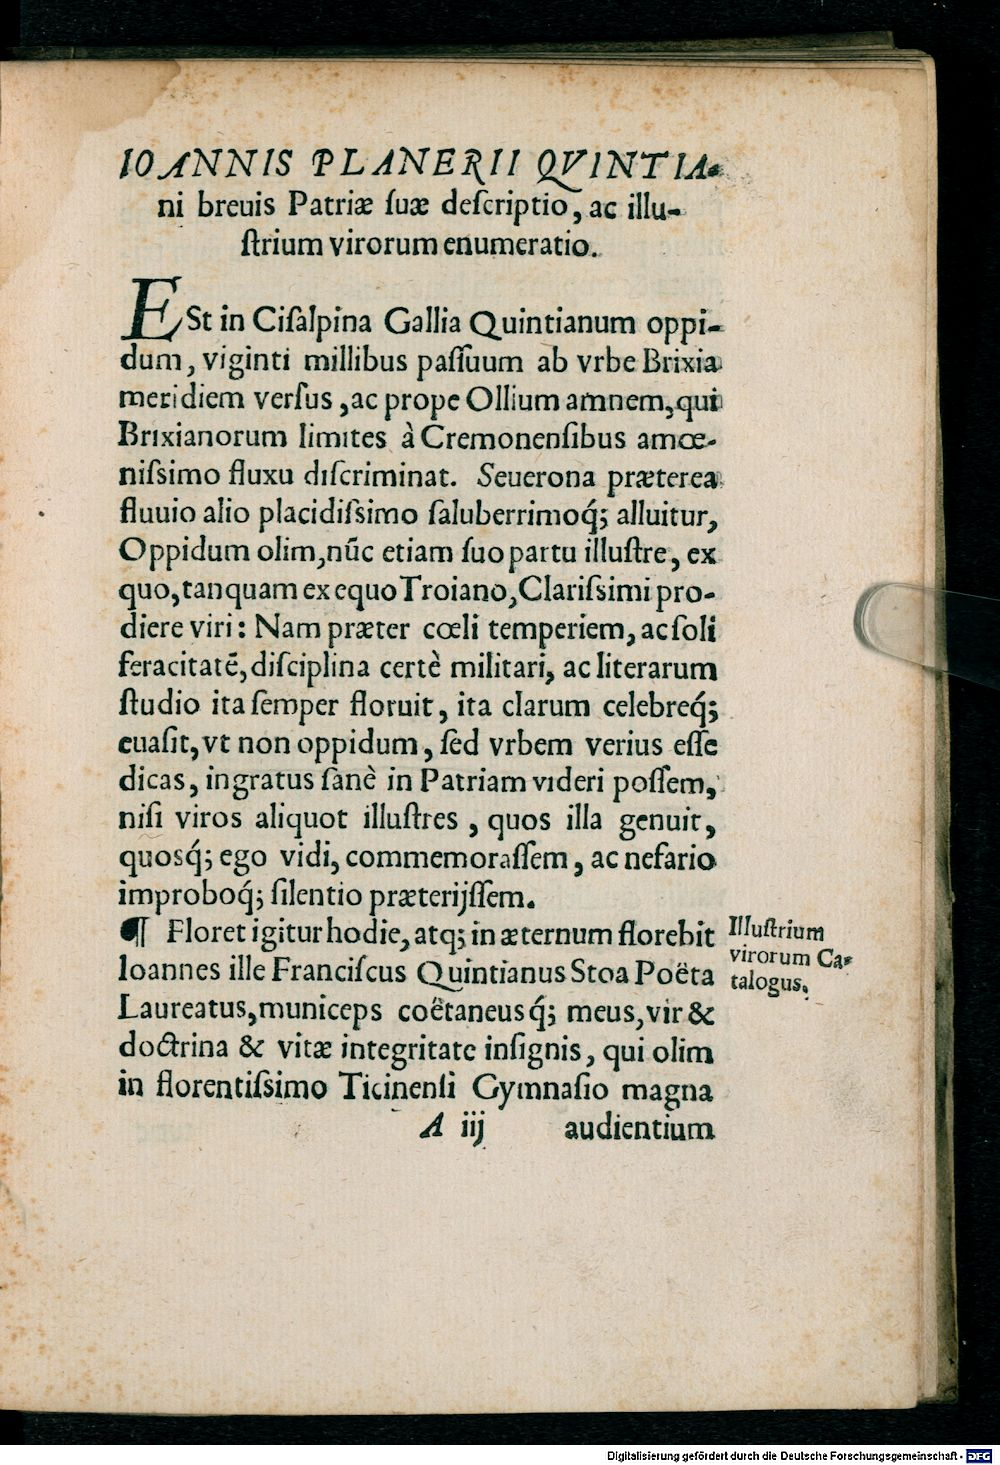 IOANNIS PLANERII QVINTIA-
ni breuis Patriæ ſuæ deſcriptio, ac illu-
ſtrium virorum enumeratio.
ESt in Ciſalpina Gallia Quintianum oppi-
dum, viginti millibus paſſuum ab vrbe Brixia
meridiem verſus, ac prope Ollium amnem, qui
Brixianorum limites à Cremonenſibus amœ-
niſsimo fluxu diſcriminat. Seuerona præterea
fluuio alio placidiſsimo ſaluberrimoq́; alluitur,
Oppidum olim, nūc etiam ſuo partu illuſtre, ex
quo, tanquam ex equo Troiano, Clariſsimi pro-
diere viri: Nam præter cœli temperiem, ac ſoli
feracitatē, diſciplina certè militari, ac literarum
ſtudio ita ſemper floruit, ita clarum celebreq́;
euaſit, vt non oppidum, ſed vrbem verius eſſe
dicas, ingratus ſanè in Patriam videri poſſem,
niſi viros aliquot illuſtres, quos illa genuit,
quosq́; ego vidi, commemoraſſem, ac nefario
improboq́; ſilentio præterijſſem.
¶ Floret igitur hodie, atq; in æternum florebit
Ioannes ille Franciſcus Quintianus Stoa Poëta
Laureatus, municeps coëtaneusq́; meus, vir &
doctrina & vitæ integritate inſignis, qui olim
in florentiſsimo Ticinenſi Gymnaſio magna
A iij audientium
Illuſtrium
virorum Ca-
talogus.
Digitalisierung gefördert durch die Deutsche Forschungsgemeinschaft - DFG